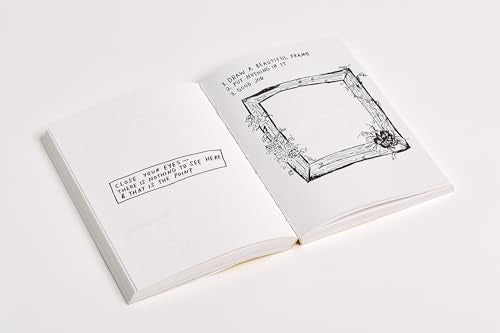 CLOSE YOUR EYES—
THERE IS NOTHING TO SEE HERE
& THAT IS THE POINT
1. DRAW A BEAUTIFUL FRAME
2. PUT NOTHING IN IT
3. GOOD JOB